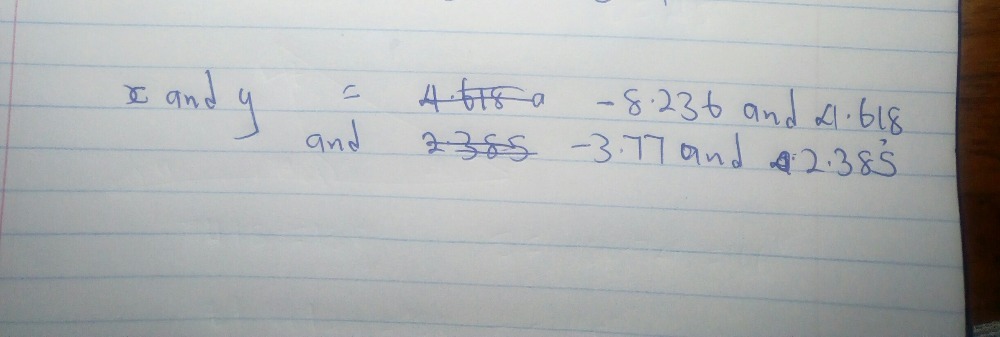 x and y = 4.618 a -8.236 and 4.618
and 2.385 -3.77 and 2.385